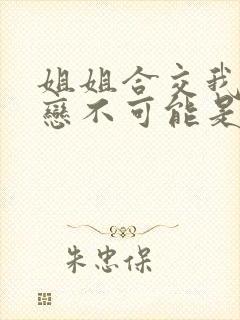 姐姐合交我
戀不可能是
朱忠保